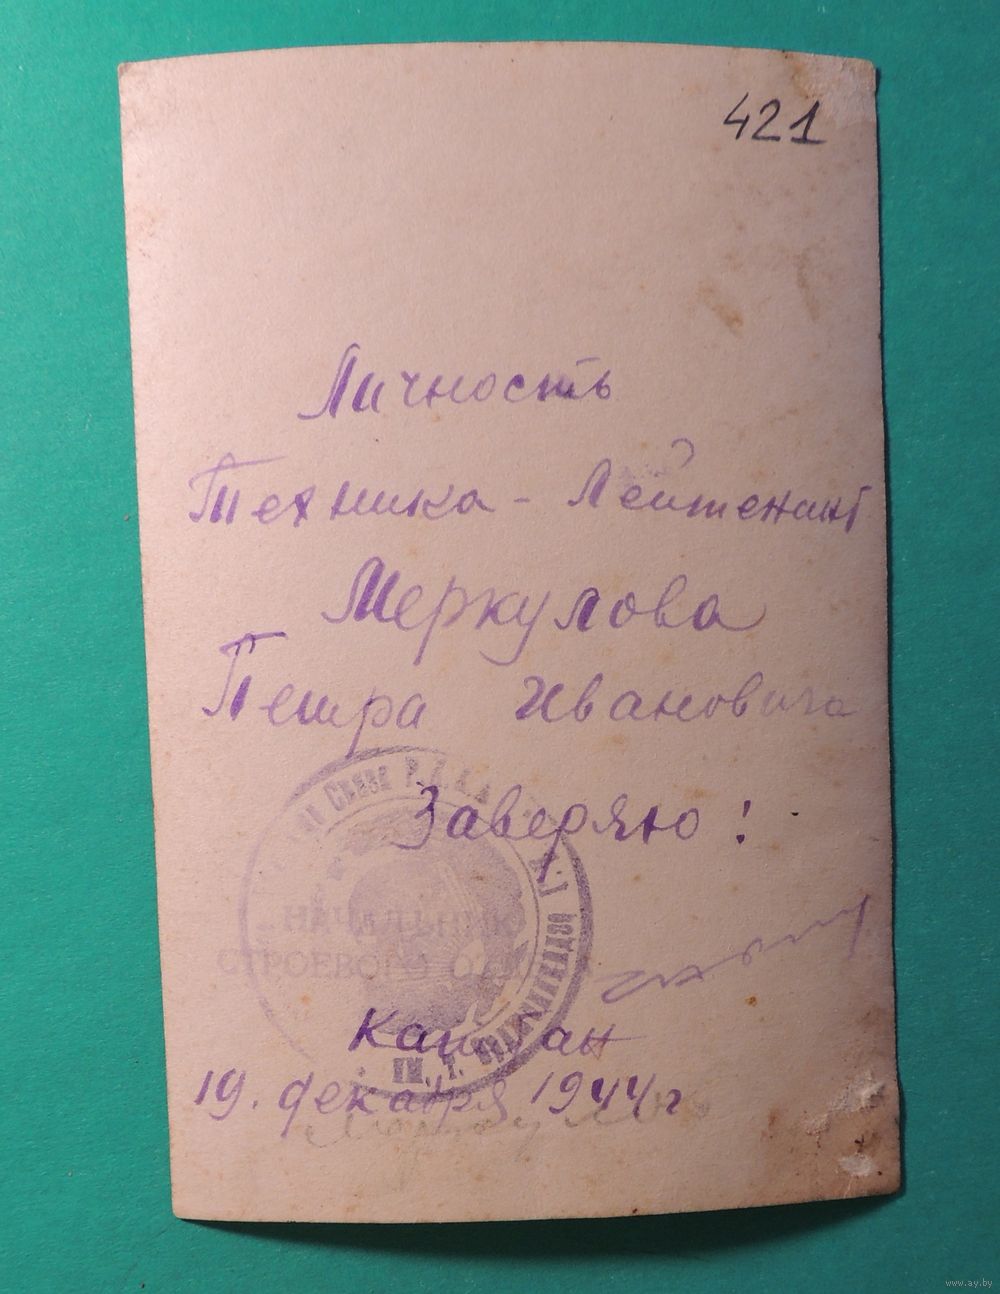 421
Личность
Техника - Лейтенант
Меркулова
Петра Ивановича
Заверяю!
Связи Р.К.К.А.
НАЧАЛЬНИК
СТРОЕВОГО
ИМ. Т. ОРДЖОНИКИДЗЕ Г.
Капитан
19. декабря 1944 г
www.ay.by